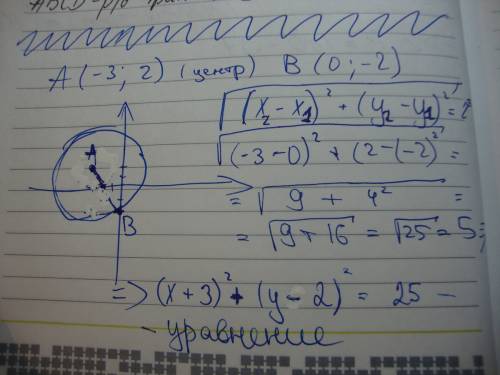 ABCD - р/б
A (-3; 2) (центр) B (0; -2)
√((x₂ - x₁)² + (y₂ - y₁)²) = r
√((-3-0)² + (2-(-2)²) =
= √(9 + 4²) =
= √(9+16) = √25 = 5 ⇒
A
B
=> (x+3)² + (y-2)² = 25 -
- уравнение